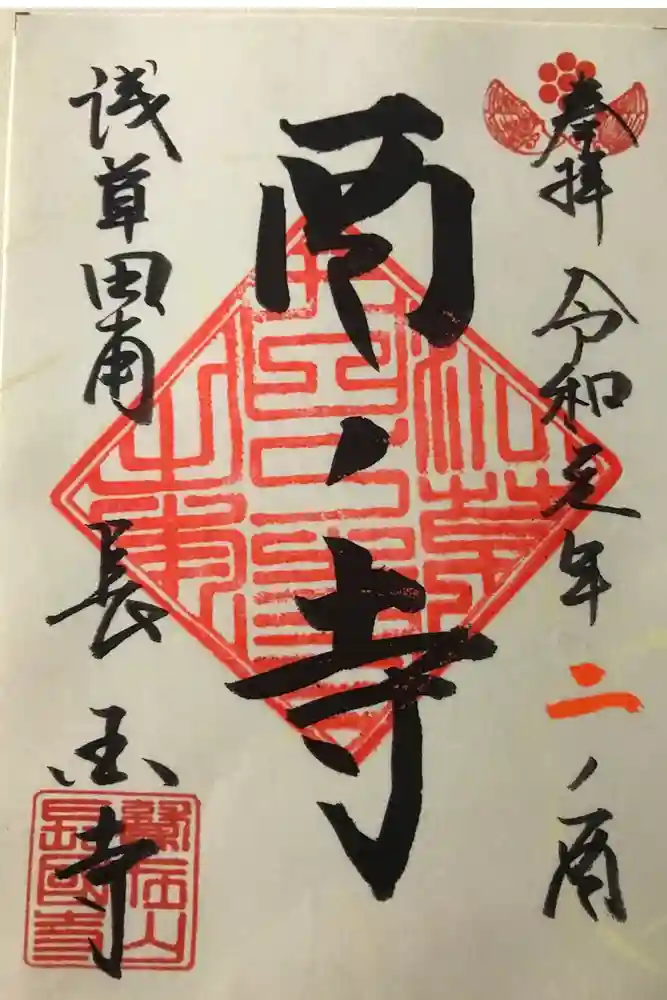 奉拝 令和元年 二ノ酉
酉ノ寺
浅草田甫 長国寺
鷲在山
長國寺